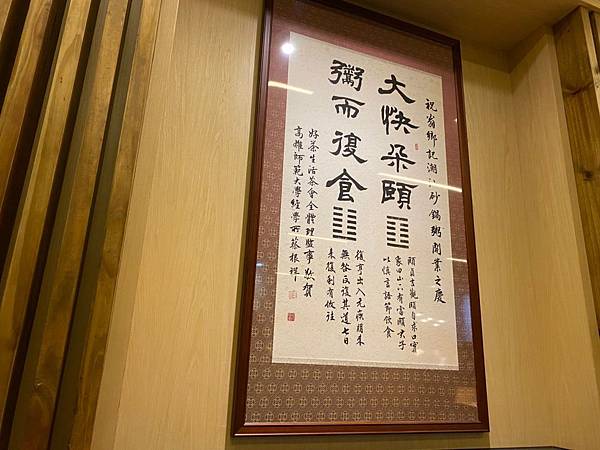 祝翁鄉記潮汕砂鍋粥開業之慶
大快朵頤
頤貞吉觀頤自求口實
象曰山下有雷頤君子
以慎言語節飲食
粥而復食
復亨出入无疾朋來
無咎反復其道七日
來復利有攸往
好茶生活茶會全體理監事 恭賀
高雄師範大學經學所 蔡根祥